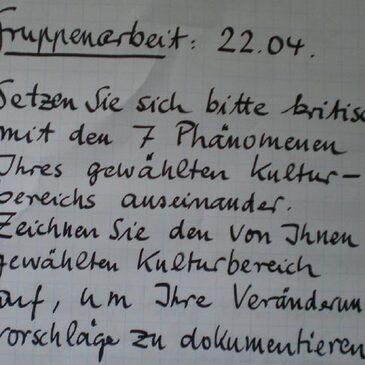 Gruppenarbeit: 22.04.
Setzen Sie sich bitte kritisc
mit den 7 Phänomenen
Ihres gewählten Kultur-
bereichs auseinander.
Zeichnen Sie den von Ihnen
gewählten Kulturbereich
auf, um Ihre Veränderun
vorschläge zu dokumentieren